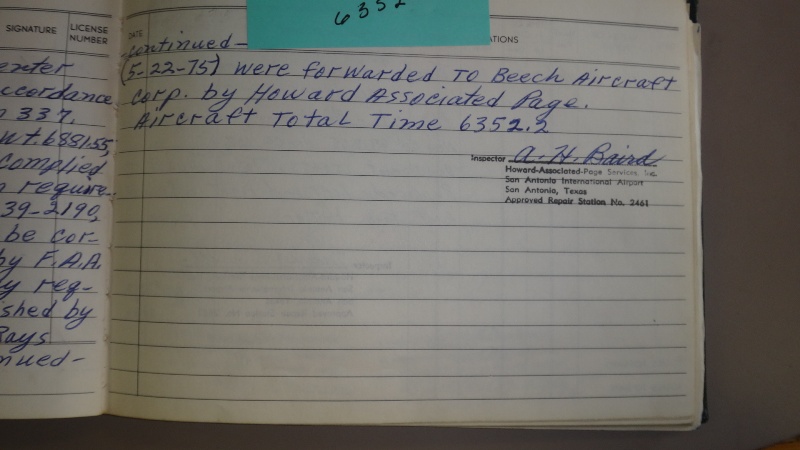 SIGNATURE LICENSE NUMBER
enter
ccordance
337.
wt. 6881.55,
complied
n require-
39-2190,
be cor-
by F.A.A.
y req-
shed by
nued-
6352
DATE
-continued-
(5-22-75) were forwarded To Beech Aircraft
corp. by Howard Associated Page.
Aircraft Total Time 6352.2
Inspector A. H. Baird
Howard-Associated-Page Services Inc
San Antonio International Airport
San Antonio, Texas
Approved Repair Station No. 2461